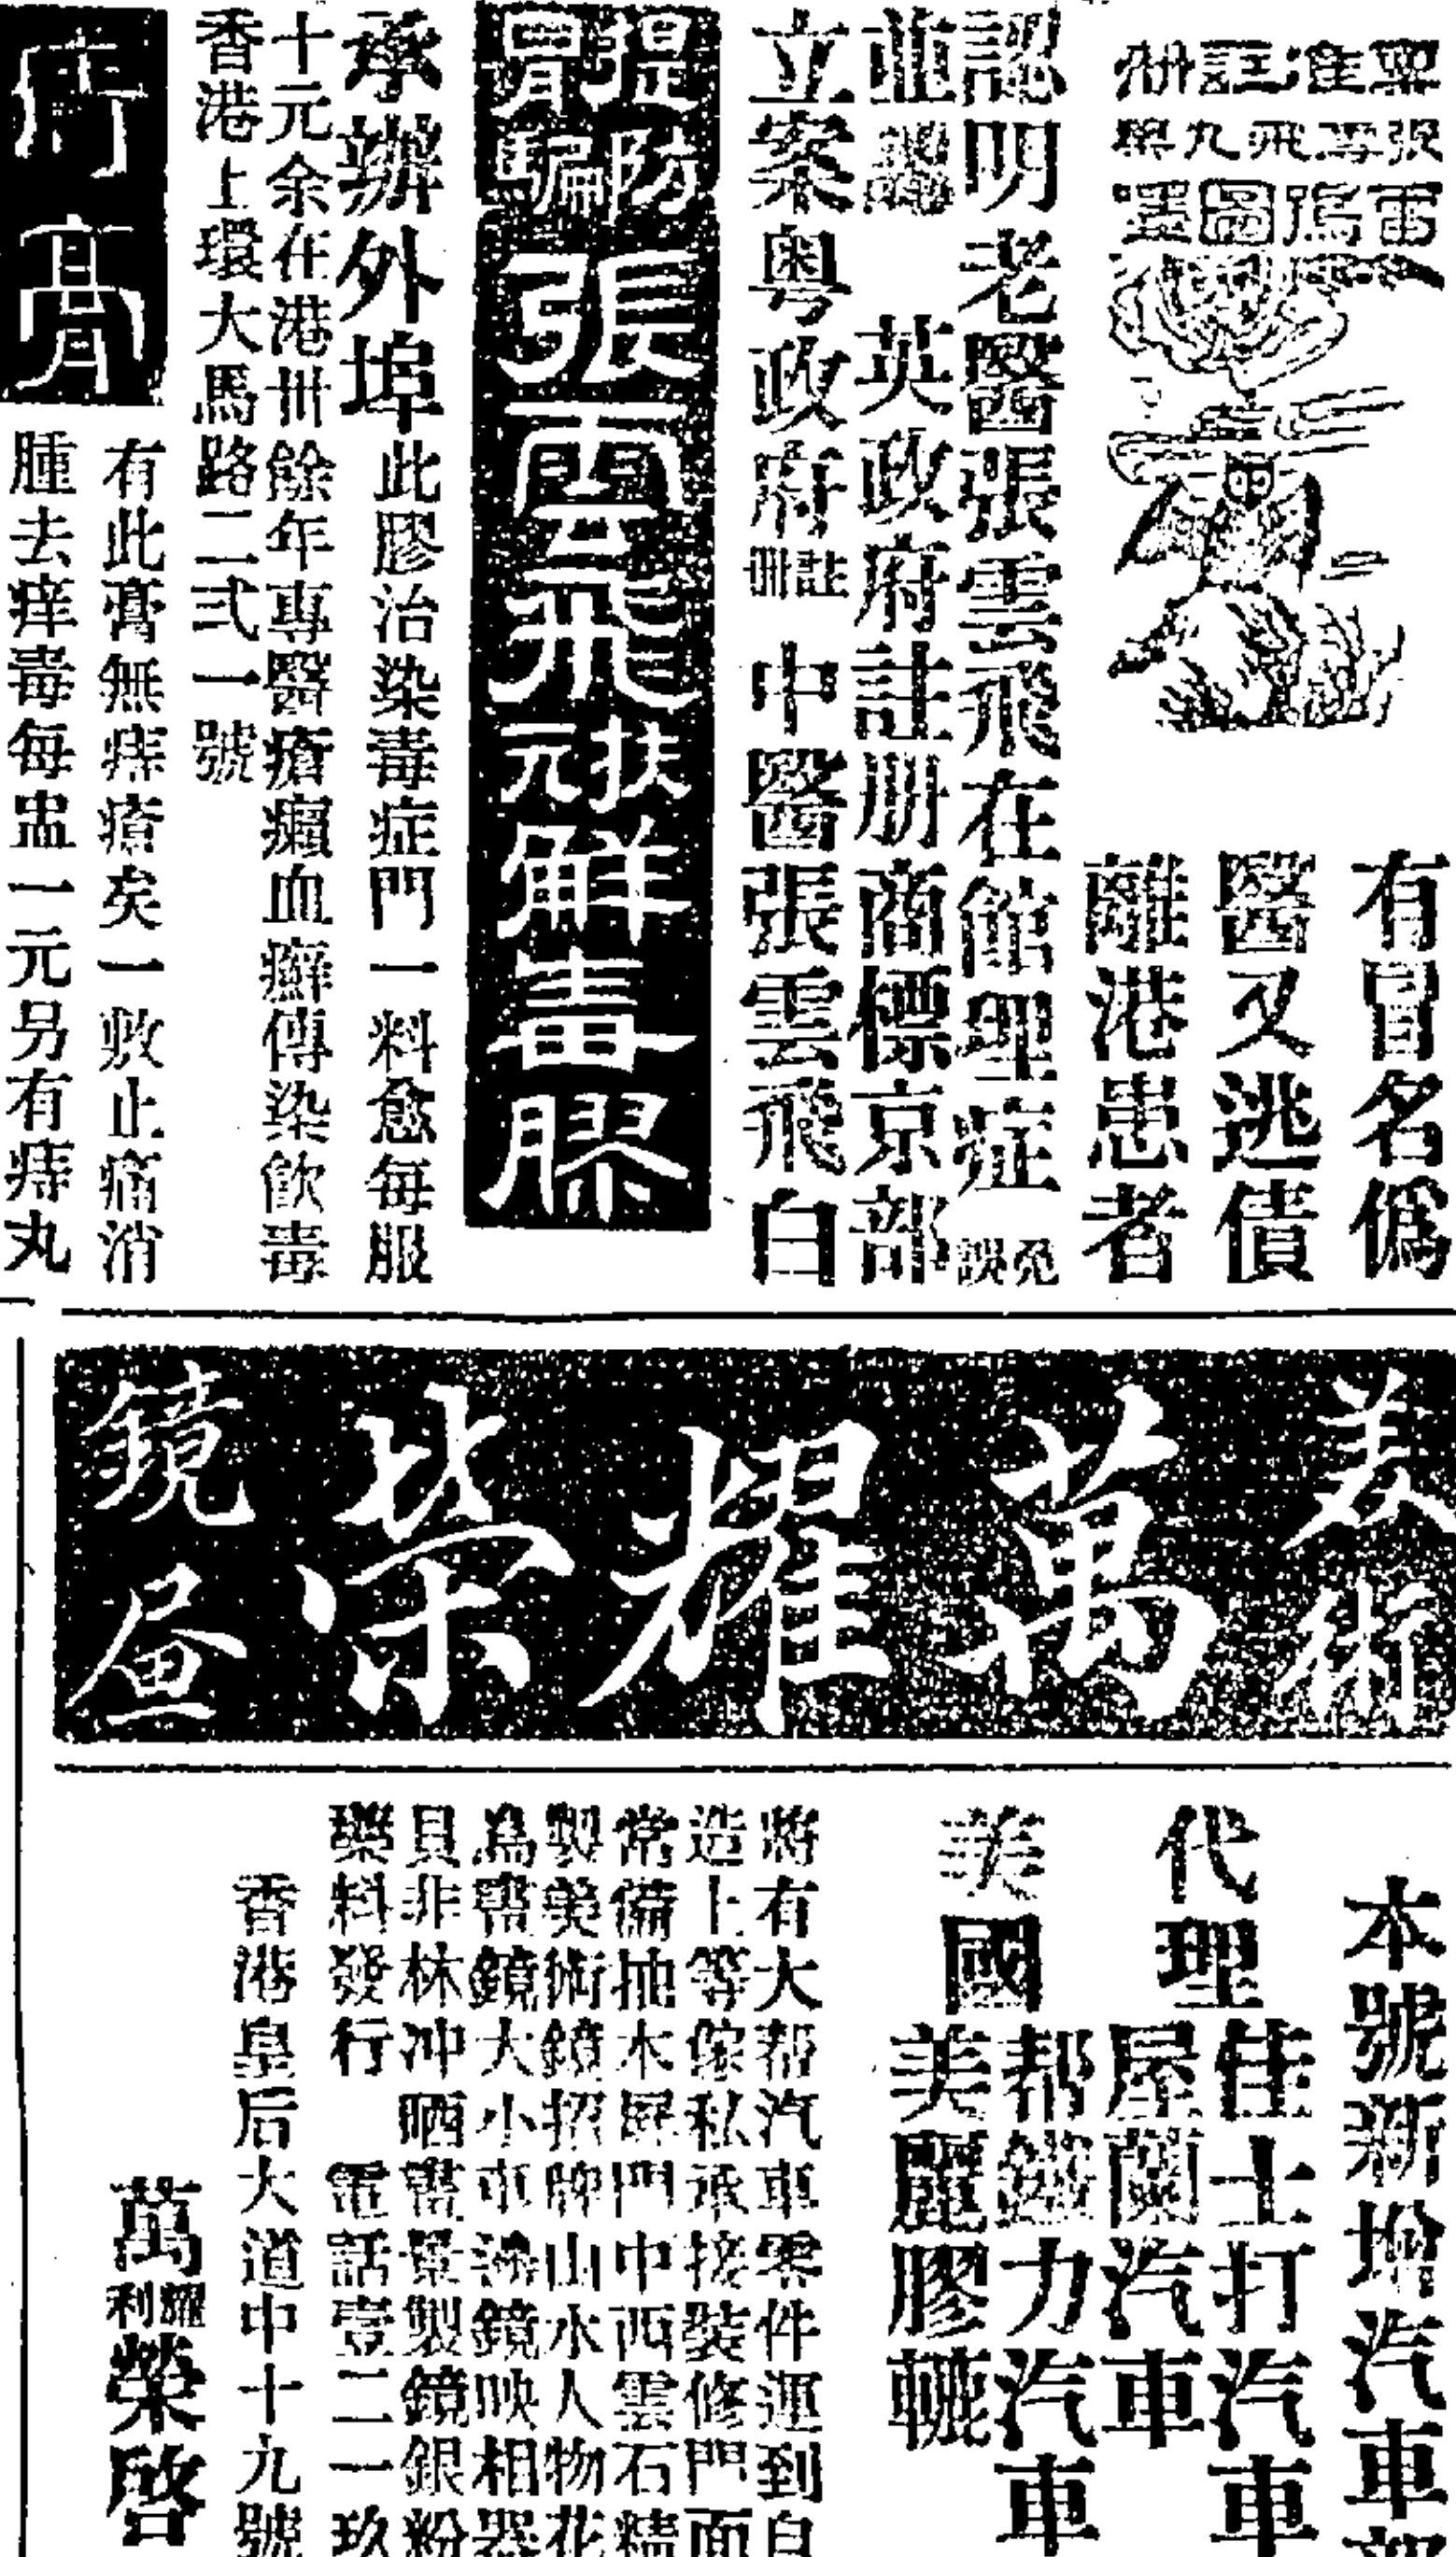 有冒名偽
醫又逃債
離港患者
認明老醫張雲飛在館理症免誤
並 英政府註册商標京部
立案粤政府註冊 中醫張雲飛白
提防冒騙
張雲飛扶元解毒膠
承辦外埠
此膠治染毒症門一料愈每服
十元余在港卅餘年專醫瘡癩血癬傳染飲毒
香港上環大馬路二弍一號
痔膏
有此膏無痔瘡矣一敷止痛消
腫去痒毒每盅一元另有痔丸
美術 萬耀榮 鏡屋
本號新增汽車部
代理
佳士打汽車
屋蘭汽車
美國
力汽車
美麗膠
將有大帮汽車零件運到自
造上等傢私承接裝修門面
常備抽木屏門中西雲石精
製美術鏡招牌山水人物花
鳥畵鏡大小車鏡映相器
具非林冲晒畵景製鏡銀粉
藥料發行 電話壹二一玖
香港皇后大道中十九號
萬耀利榮啓